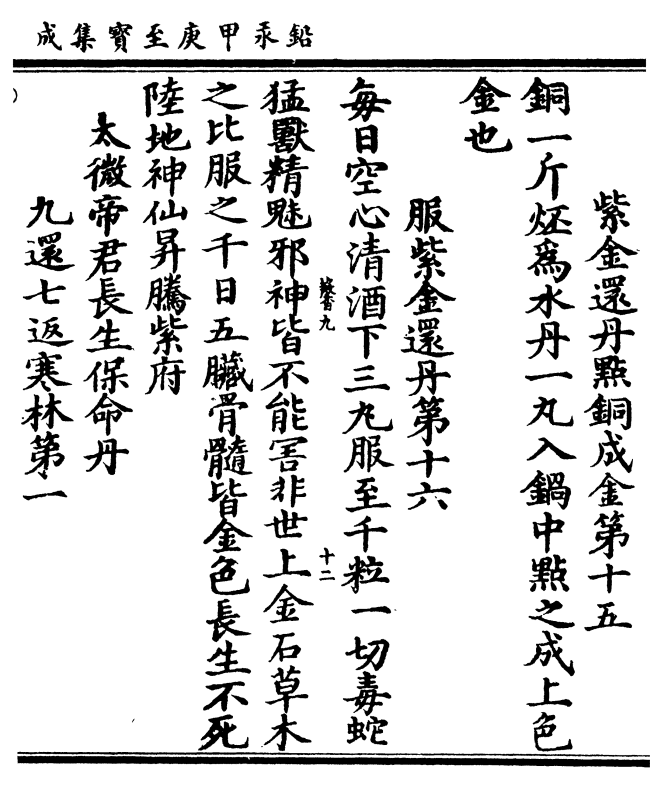 鉛汞甲庚至寶集成
紫金還丹點銅成金第十五
銅一斤炢爲水丹一丸入鍋中點之成上色
金也
服紫金還丹第十六
每日空心清酒下三丸服至千粒一切毒蛇
猛獸精魅邪神皆不能害非世上金石草木
之比服之千日五臟骨髓皆金色長生不死
陸地神仙昇騰紫府
太微帝君長生保命丹
九還七返寒林第一
十二